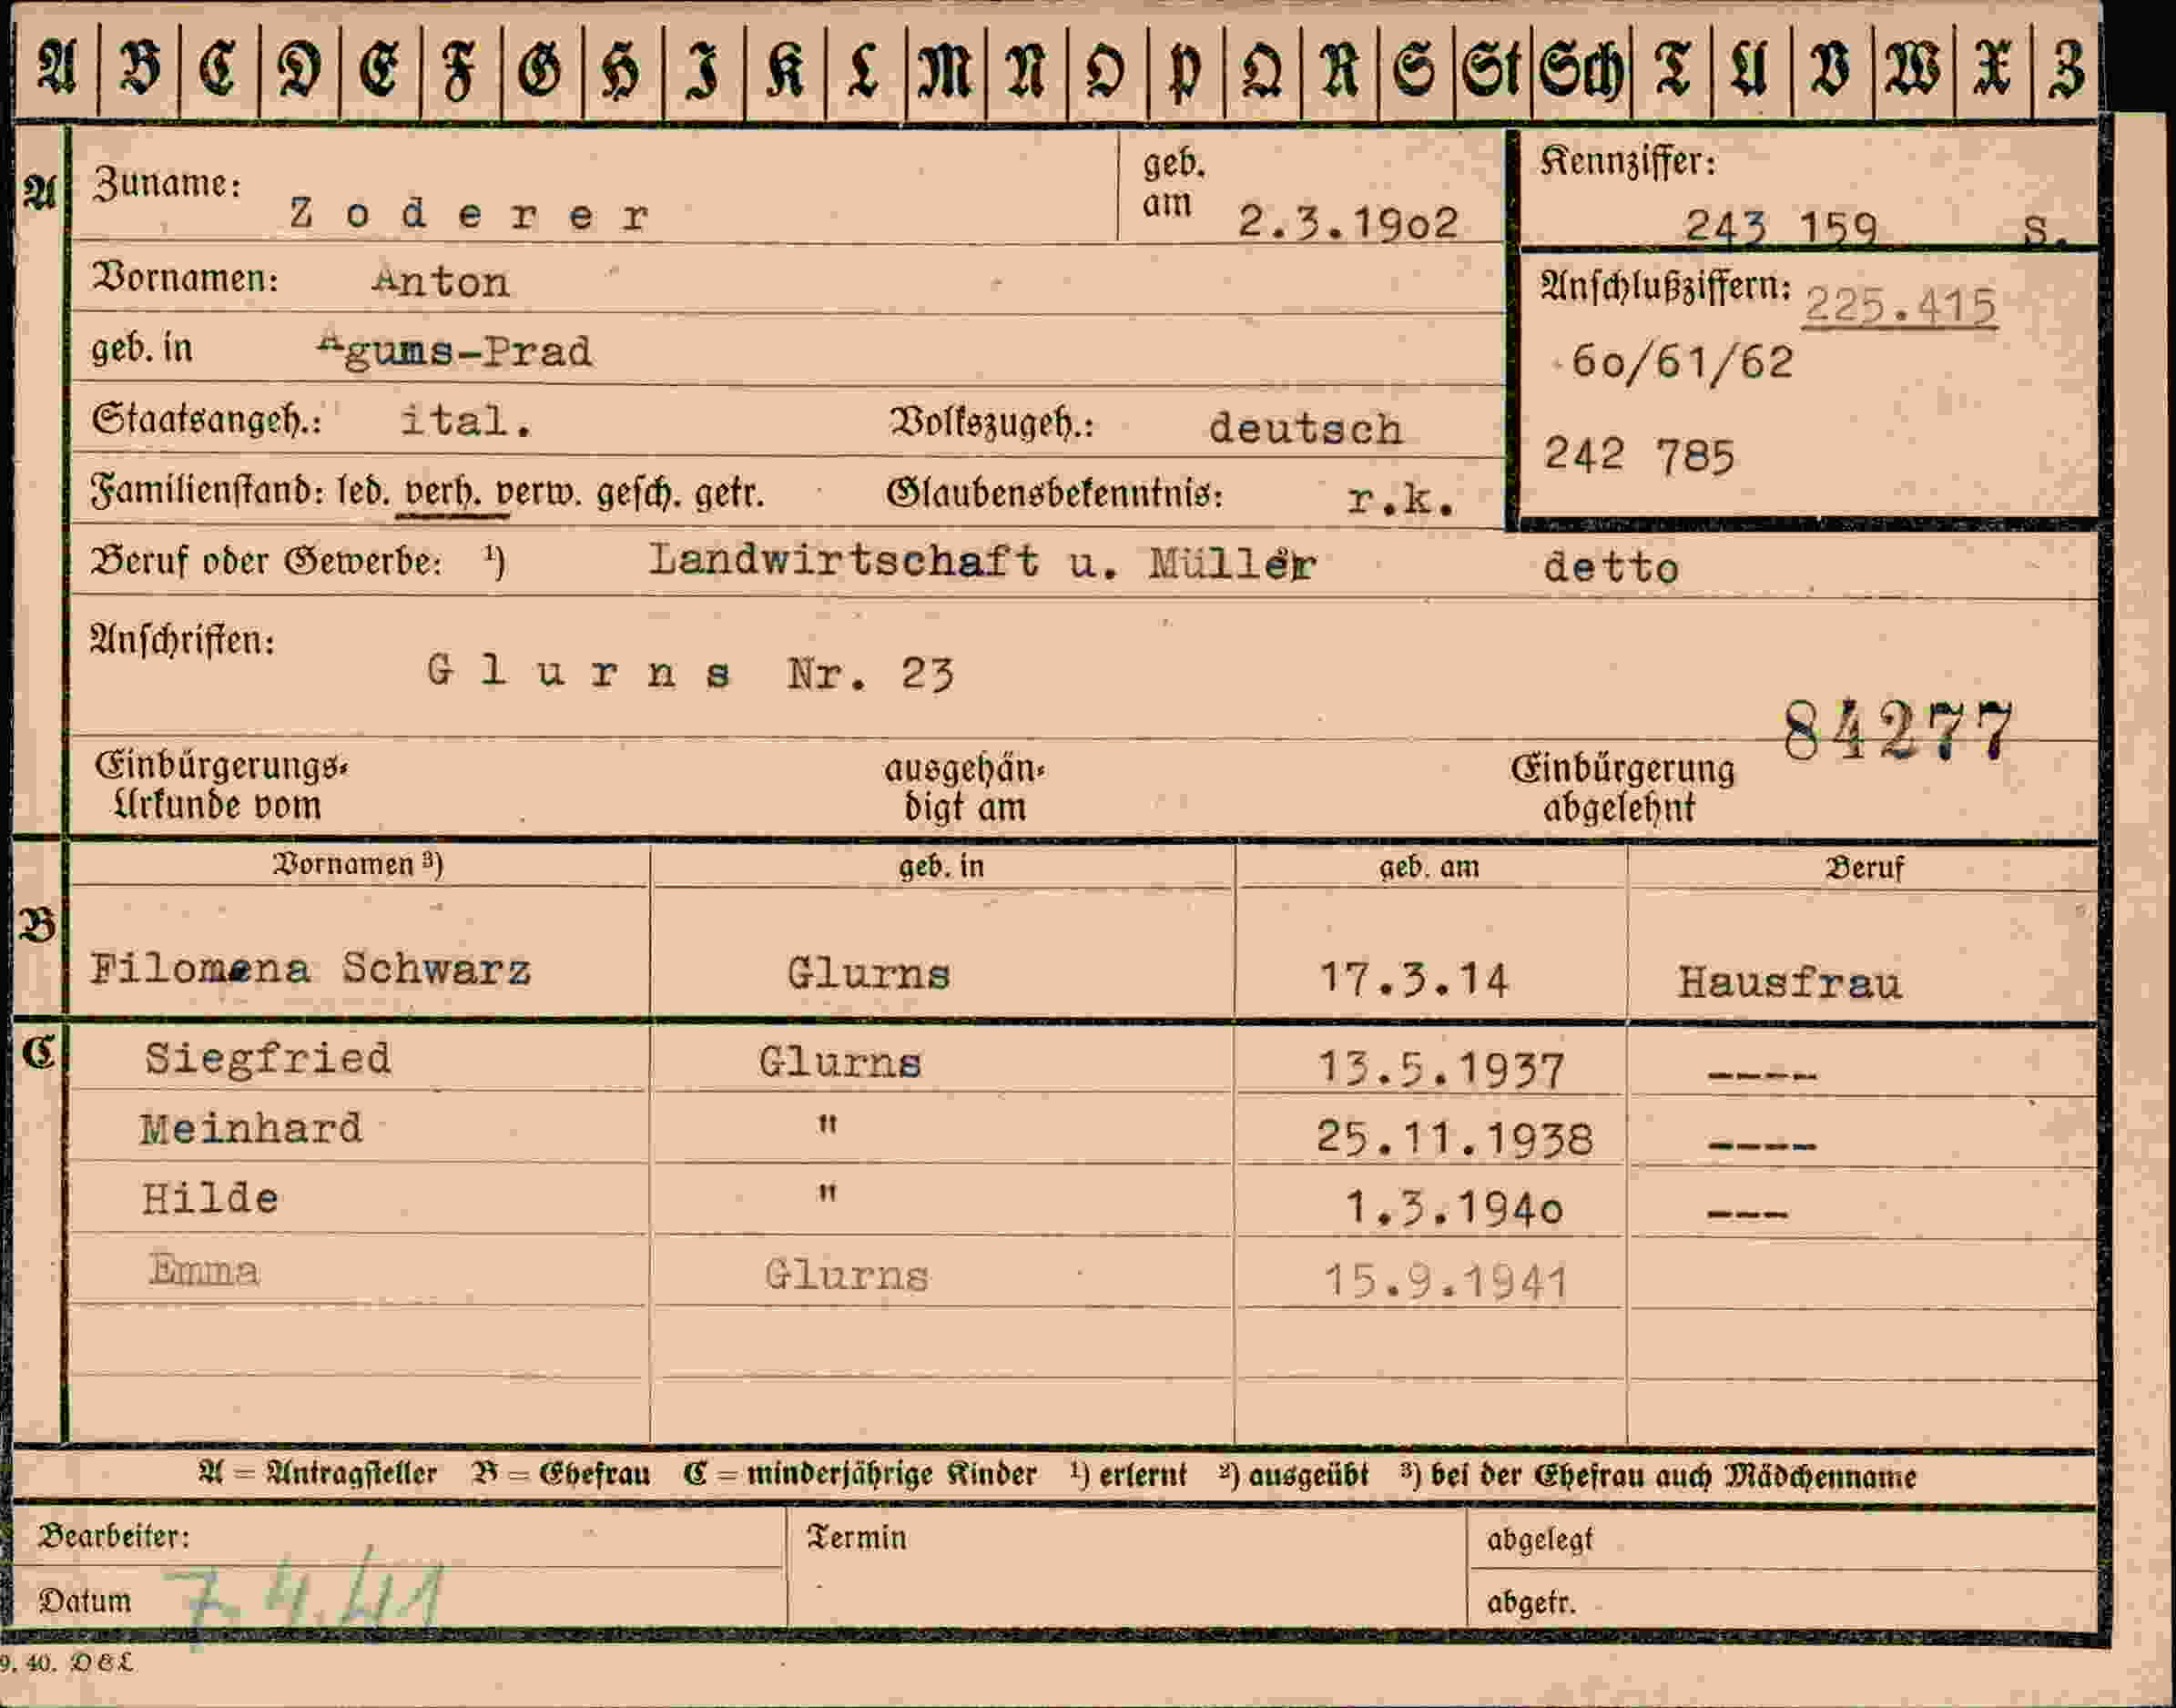 A B C D E F G H I K L M N O P Q R S St Sch T U V W X Z
A Zuname: Zoderer geb. am 2.3.19o2 Kennziffer: 243 159 S.
Vornamen: Anton Anschlußziffern: 225.415
geb. in Agums-Prad 6o/61/62
Staatsangeh.: ital. Volkszugeh.: deutsch 242 785
Familienstand: led. verh. verw. gesch. getr. Glaubensbekenntnis: r.k.
Beruf oder Gewerbe: ¹) Landwirtschaft u. Müller detto
Anschriften: Glurns Nr. 23
84277
Einbürgerungs-Urkunde vom ausgehändigt am Einbürgerung abgelehnt
Vornamen ³) geb. in geb. am Beruf
B Filomena Schwarz Glurns 17.3.14 Hausfrau
C Siegfried Glurns 13.5.1937 ----
Meinhard " 25.11.1938 ----
Hilde " 1.3.194o ---
Emma Glurns 15.9.1941
A = Antragsteller B = Ehefrau C = minderjährige Kinder ¹) erlernt ²) ausgeübt ³) bei der Ehefrau auch Mädchenname
Bearbeiter: Termin abgelegt
Datum 7.4.41 abgetr.
9. 40. D & L